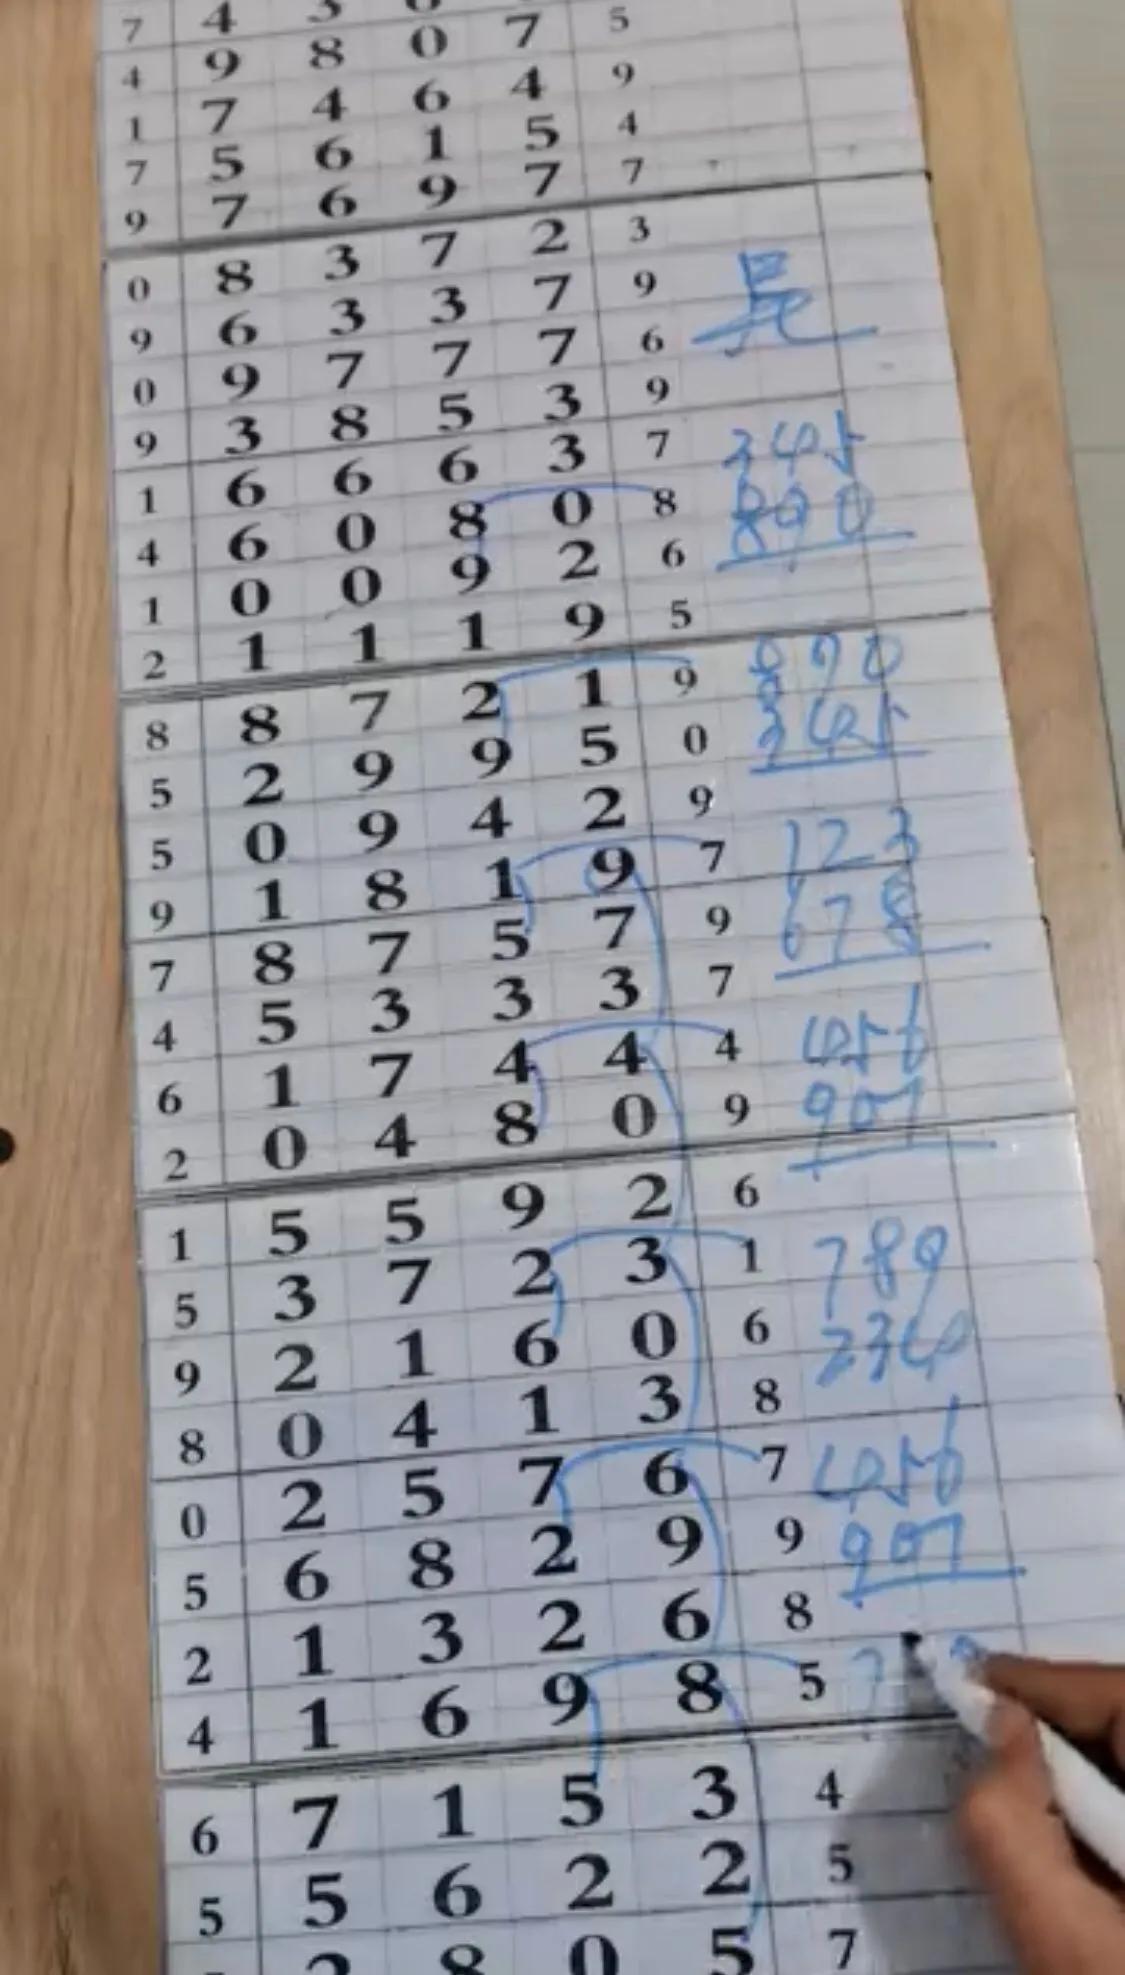 7 4 3
4 9 8 0 7 5
1 7 4 6 4 9
7 5 6 1 5 4
9 7 6 9 7 7
0 8 3 7 2 3
9 6 3 3 7 9
0 9 7 7 7 6
9 3 8 5 3 9
1 6 6 6 3 7 345
4 6 0 8 0 8 890
1 0 0 9 2 6
2 1 1 1 9 5
8 8 7 2 1 9 890
5 2 9 9 5 0 345
5 0 9 4 2 9
9 1 8 1 9 7 123
7 8 7 5 7 9 678
4 5 3 3 3 7
6 1 7 4 4 4 456
2 0 4 8 0 9 901
1 5 5 9 2 6
5 3 7 2 3 1 789
9 2 1 6 0 6 234
8 0 4 1 3 8
0 2 5 7 6 7 456
5 6 8 2 9 9 901
2 1 3 2 6 8
4 1 6 9 8 5 7
6 7 1 5 3 4
5 5 6 2 2 5
8 0 5 7